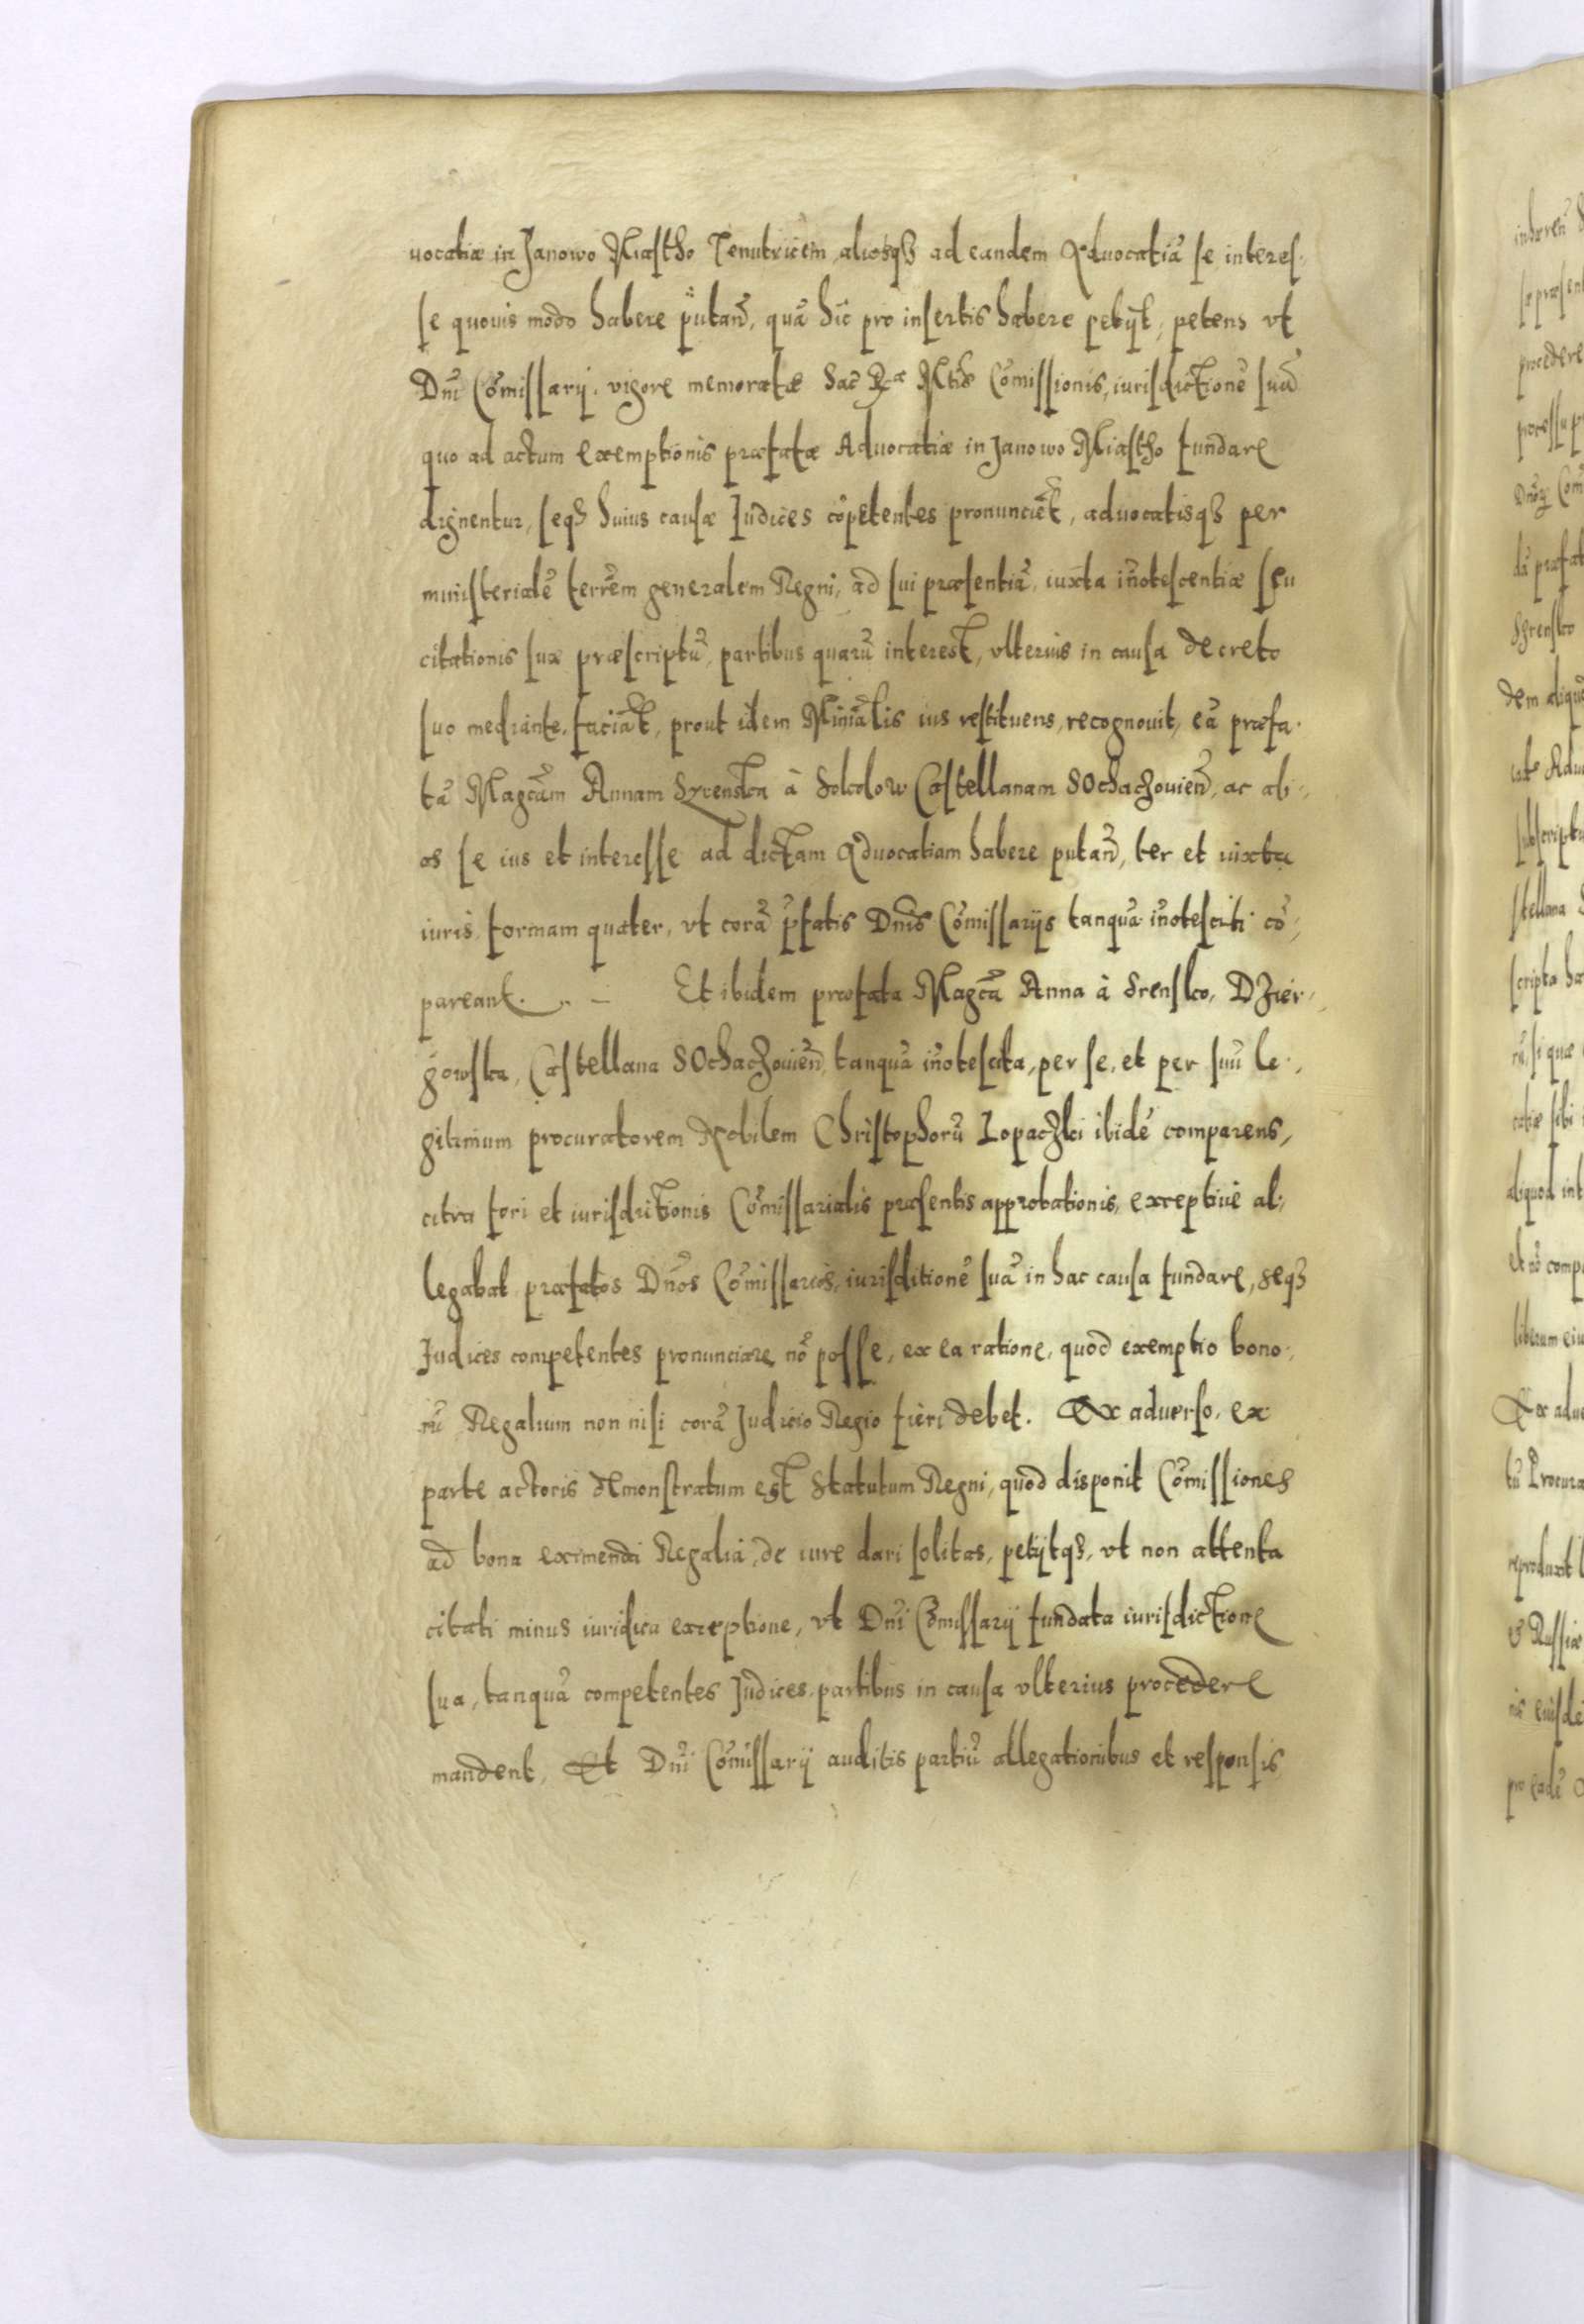 uocatiæ in Janowo Miastho Tenutricem aliosqꝫ ad eandem Aduocatiã se interes,
se quouis modo habere putañ, quã hic pro insertis habere petijt, petens vt
Dnĩ Cõmissarij, vigore memoratæ Sac̃ Rꝫæ Mttis Cõmissionis, iurisdictionẽ suã
quo ad actum exemptionis præfatæ Aduocatiæ in Janowo Miastho fundare
dignentur, seqꝫ huius causæ Judices cõpetentes pronunciẽt, aduocatisqꝫ per
ministerialẽ terrẽm generalem Regni, ad sui præsentiã, iuxta iñotescentiæ seu
citationis suæ præscriptũ, partibus quarũ interest, vlterius in causa decreto
suo mediante, faciãt, prout idem Miniãlis ius restituens, recognouit, eã præfa,
tã Magcãm Annam Srenska à Sokolow Castellanam SOchaczouieñ, ac ali,
os se ius et interesse ad dictam Aduocatiam habere putañ, ter et iuxta
iuris formam quater, vt corã p̃fatis Dnis Cõmissarijs tanquã iñotesciti cõ,
pareant. Et ibidem præfata Magcã Anna à Srensko, DZier,
gowska, Castellana SOchaczouieñ, tanquã iñotescita, per se, et per suũ le,
gitimum procuratorem Nobilem Christophorũ Lopaczki ibidẽ comparens,
citra fori et iurisditionis Cõmissarialis præsentis approbationis, exceptiuè al,
legabat præfatos Dños Cõmissarios, iurisditionẽ suã in hac causa fundare, seqꝫ
Judices competentes pronunciare nõ posse, ex ea ratione, quod exemptio bono,
rũ Regalium non nisi corã Judicio Regio fieri debet. Ex aduerso, ex
parte actoris demonstratum est Statutum Regni, quod disponit Cõmissiones
ad bona eximendi Regalia, de iure dari solitas, petijtqꝫ, vt non attenta
citati minus iuridica exceptione, vt Dnĩ Cõmissarij fundata iurisdictione
sua, tanquã competentes Judices, partibus in causa vlterius procedere
mandent, Et Dnĩ Cõmissarij auditis partiũ allegationibus et responsis